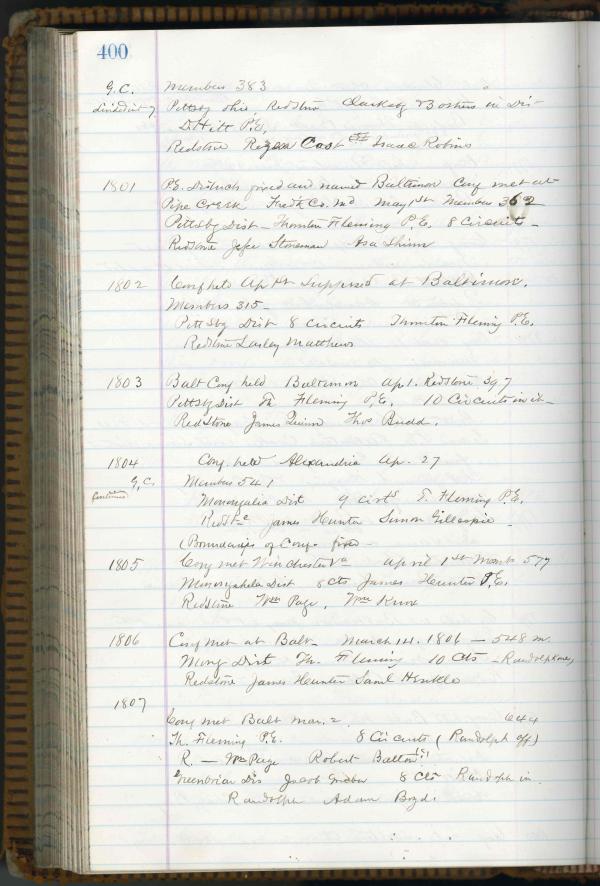 400
G.C. Members 383
Pittsbg Ohio Redstone Clarksbg Bostons in Dis-
D. Hitt P.E.
Redstone Cost Isaac Robins
1801 P.E. Districts joined and named Baltimore Conf met at
Pipe Creek Fredk Co. Md May 1st Members 362
Pittsbg Dist - Thornton Fleming P.E. 8 Circuits -
Redstone Jesse Stoneman Asa Shinn
1802 Conf held Ap 1st Supposed at Baltimore.
Members 315 -
Pittsbg Dist 8 circuits Thornton Fleming P.E.
Redstone Lasley Matthews
1803 Balt Conf held Baltimore Ap 1. Redstone 397
Pittsbg Dist Th Fleming P.E. 10 Circuits in it -
Redstone James Quinn Thos Budd.
1804 Conf. held Alexandria Ap. 27
G.C. Members 541
Monongalia Dist 9 circts T. Fleming P.E.
Redste James Hunter Simon Gillespie -
(Boundaries of Conf. fixed -
1805 Conf met Winchester Va April 1st Memb 577
Monongahela Dist 8 cts James Hunter P.E.
Redstone Wm Page, Wm Knox
1806 Conf met at Balt - March 14. 1806 - 548 m.
Mong Dist Th. Fleming 10 Cts - Randolph
Redstone James Hunter Saml Henkle
1807
Conf met Balt Mar. 2 644
Th. Fleming P.E. 8 Circuits (Randolph off)
R. - Wm Page Robert Bolton
Greenbriar Dis Jacob Gruber 8 Cts Randolph in
Randolph Adam Boyd.